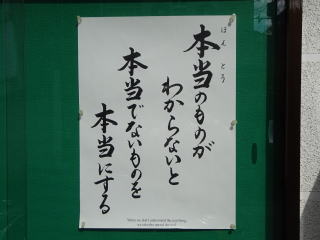 本当のものが
ほんとう
わからないと
本当でないものを
本当にする